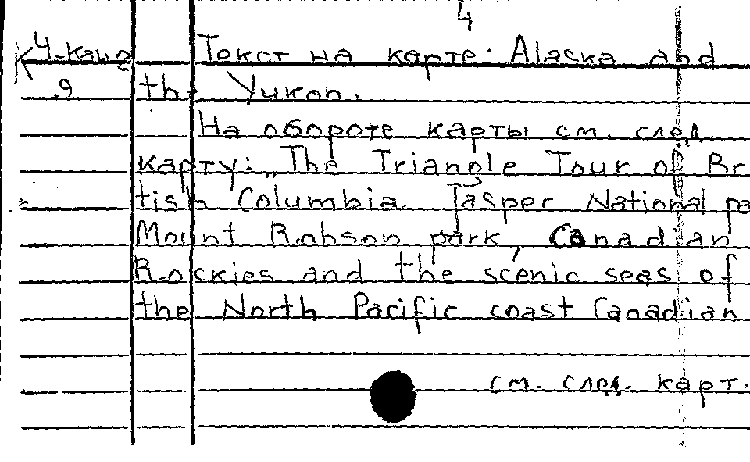 4
Текст на карте: Alaska and
the Yukon.
На обороте карты см. след
карту: „The Triangle Tour of Br
tish Columbia Jasper National pa
Mount Robson park, Canadian
Rockies and the scenic seas of
the North Pacific coast Canadian
см. след. карт.